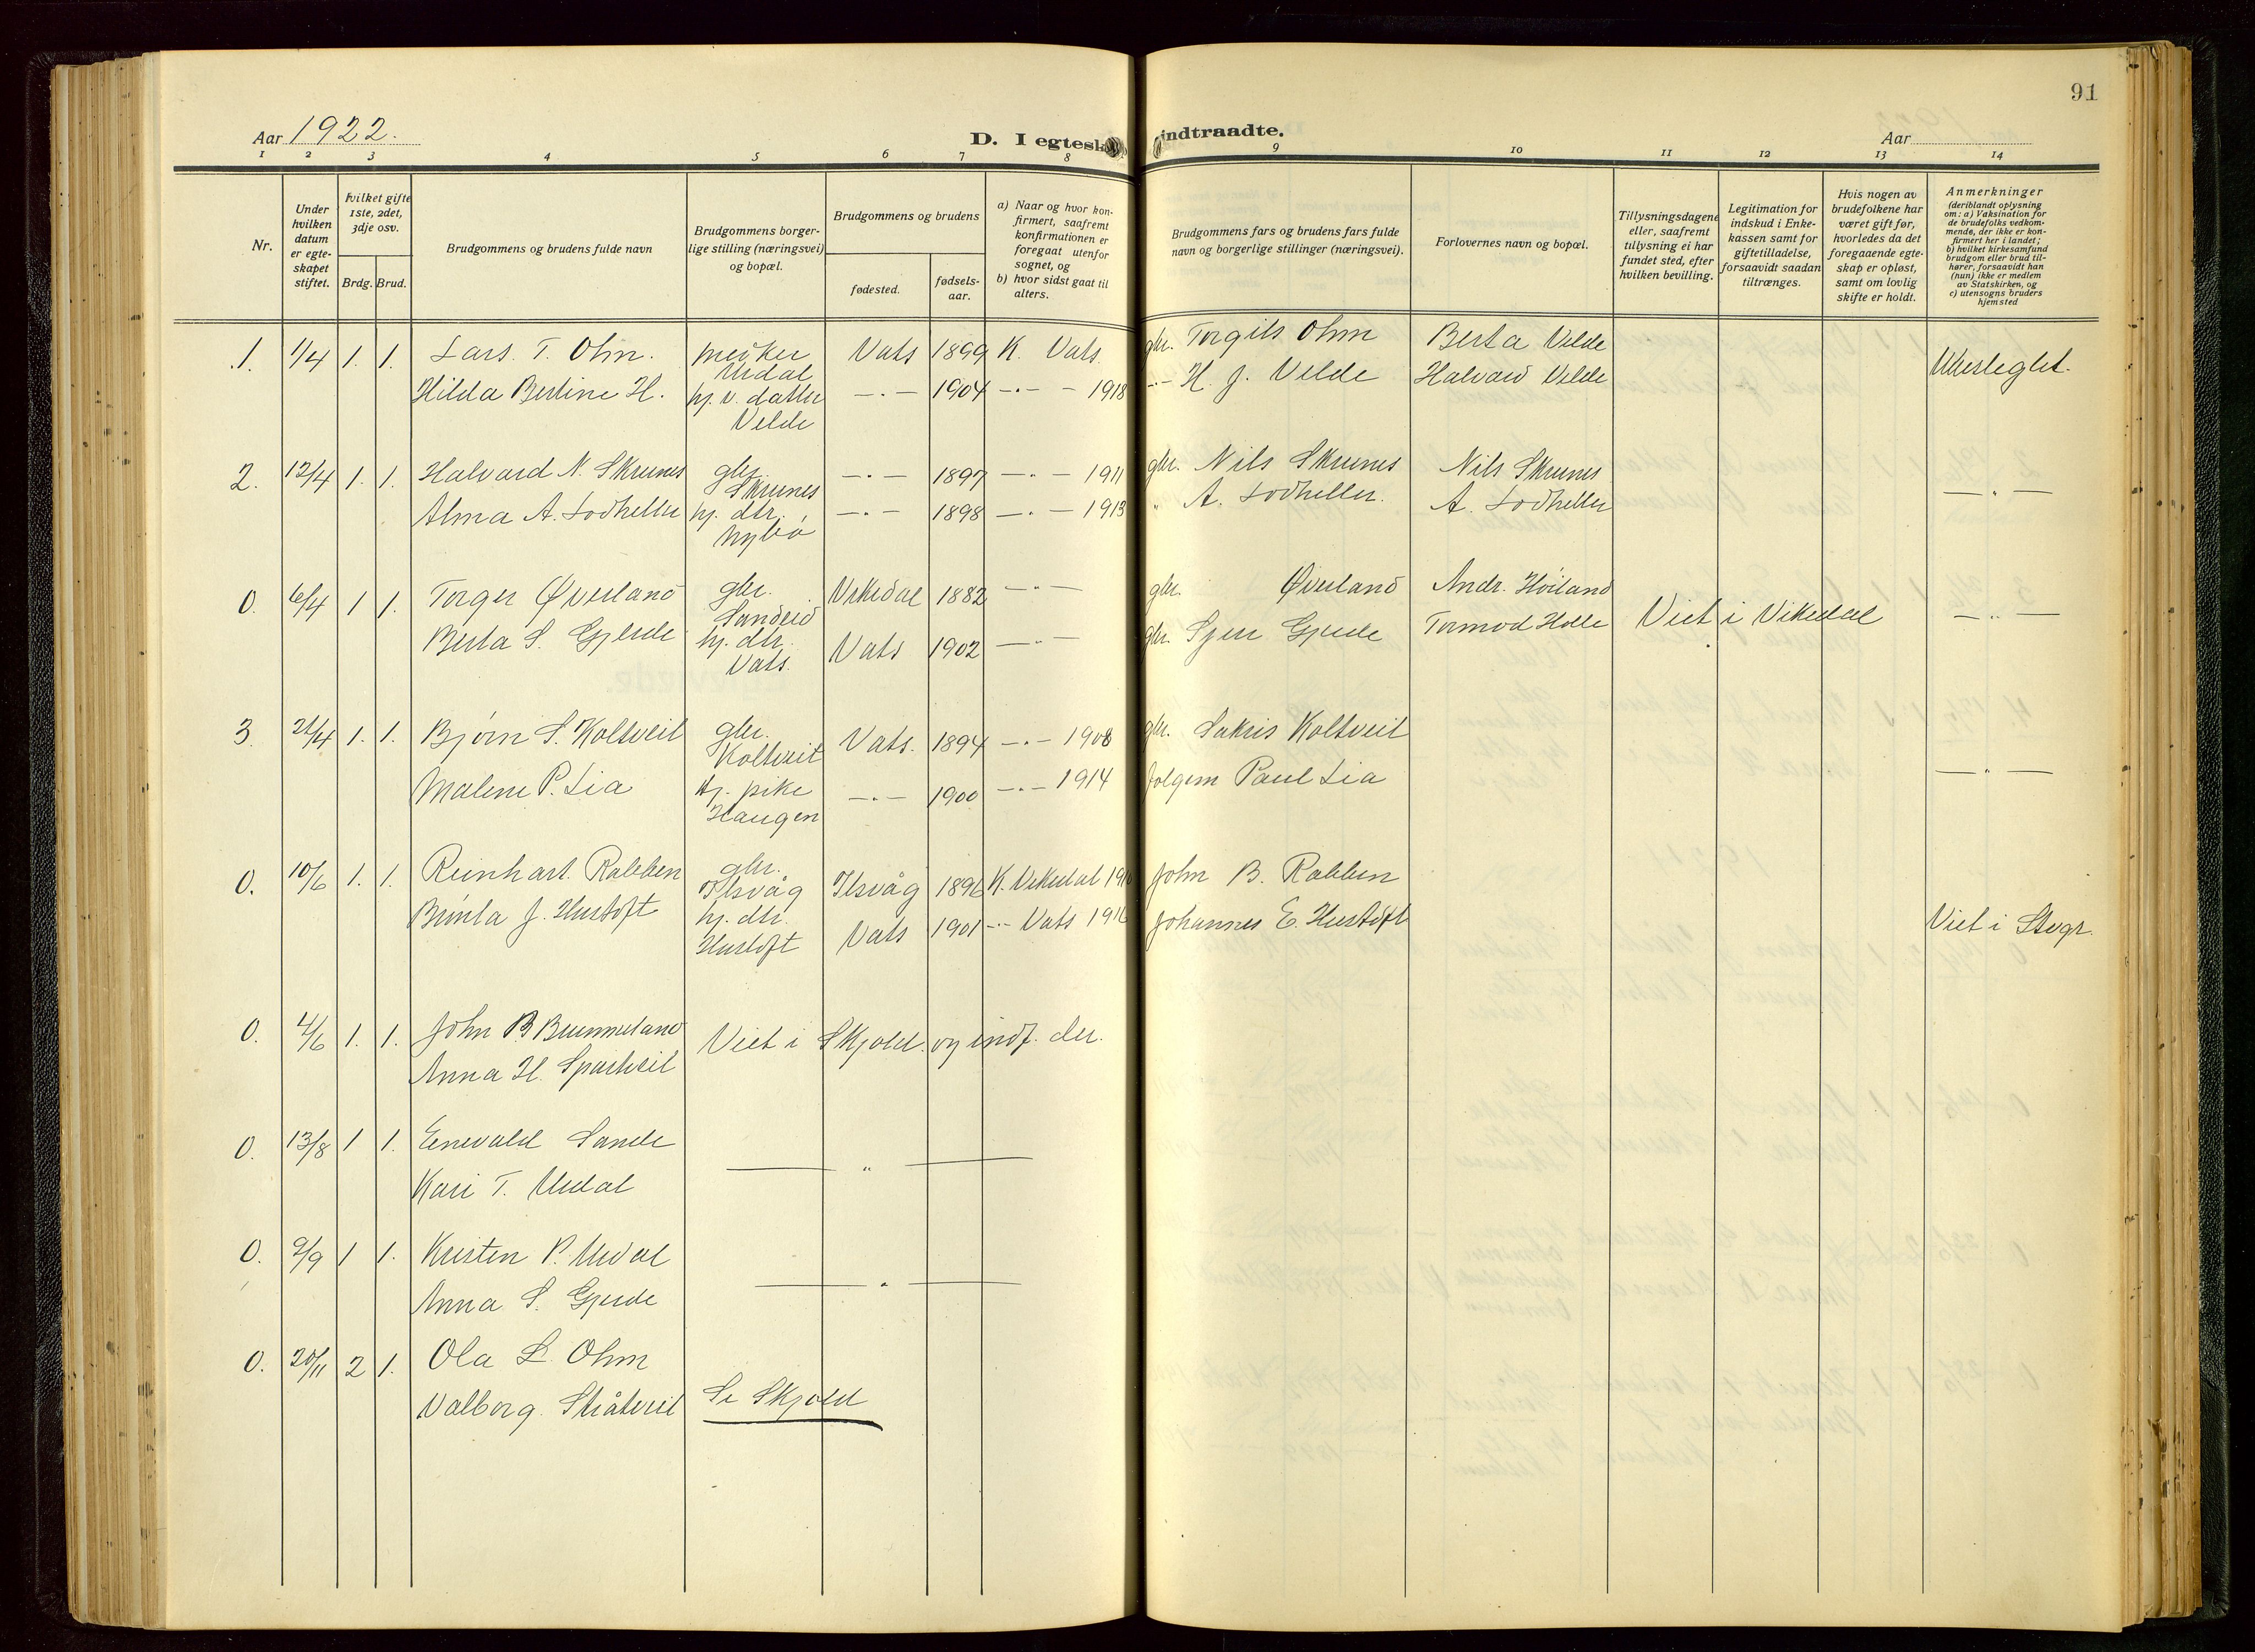 91
Aar 1922.
D. I egtesk
indtraadte.
Aar
1 2 3 4 5 6 7 8 9 10 11 12 13 14
Nr.
Under hvilken datum er egteskapet stiftet.
hvilket gifte 1ste, 2det, 3dje osv.
Brdg. Brud.
Brudgommens og brudens fulde navn
Brudgommens borgerlige stilling (næringsvei) og bopæl.
Brudgommens og brudens
fødested.
fødselsaar.
a) Naar og hvor konfirmert, saafremt konfirmationen er foregaat utenfor sognet, og
b) hvor sidst gaat til alters.
Brudgommens fars og brudens fars fulde navn og borgerlige stillinger (næringsvei).
Forlovernes navn og bopæl.
Tillysningsdagene eller, saafremt tillysning ei har fundet sted, efter hvilken bevilling.
Legitimation for indskud i Enkekassen samt for giftetilladelse, forsaavidt saadan tiltrænges.
Hvis nogen av brudefolkene har været gift før, hvorledes da det foregaaende egteskap er opløst, samt om lovlig skifte er holdt.
Anmerkninger (deriblandt oplysning om: a) Vaksination for de brudefolks vedkommende, der ikke er konfirmert her i landet; b) hvilket kirkesamfund brudgom eller brud tilhører, forsaavidt han (hun) ikke er medlem av Statskirken, og c) utensogns bruders hjemsted
1. 1/4 1. 1. Lars. T. Ohm. Urdal Vats 1899 K. Vats. gbr. Torgils Ohm Berta Velde
Hilda Bertine H. hj. v. datter Velde —"— 1904 —"— 1918 —"— H. J. Velde Halvard Velde Ubeslegtet.
2. 12/4 1. 1. Halvard N. Skrunes gbr. Skrunes —"— 1897 —"— 1911 gbr. Nils Skrunes Nils Skrunes
Alma A. Lodheller hj. dtr. Nybø —"— 1898 —"— 1913 " A. Lodheller. A. Lodheller —"—
0. 6/4 1 1. Torger Øverland gbr. Sandeid Vikedal 1882 —"— gbr. Øverland Andr. Høiland
Berta S. Gjerde hj. dtr. Vats. Vats 1902 —"— gbr. Sjur Gjerde Tormod Holle Viet i Vikedal —"—
3. 21/4 1. 1. Bjørn S. Koltveit gbr. Koltveit Vats. 1894 —"— 1908 gbr. Sakris Koltveit
Malene P. Lia hj. pike Haugen —"— 1900 —"— 1914 Paul Lia —"—
0. 10/6 1. 1. Reinhart Rabben gbr. Ilsvåg Ilsvåg 1896 K. Vikedal John B. Rabben
J. Hustoft hj. dtr. Hustoft Vats 1901 —"— Vats 1916 Johannes E. Hustoft Viet i Stvgr.
0. 4/6 1. 1. John B Brummeland Viet i Skjold og indf. der.
Anna H. Spartveit
0. 13/8 1 1. Enevald Sande
Kari T. Urdal —"—
0. 9/9 1 1. Kristen P. Urdal
Anna S. Gjerde —"—
0. 20/11 2 1. Ola L. Ohm
Valborg Stråtveit Se Skjold